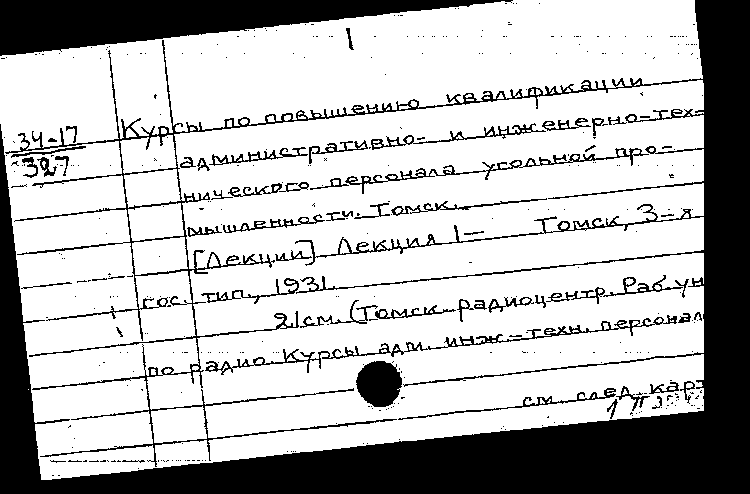 1
34-17
327
Курсы по повышению квалификации
административно- и инженерно-тех-
нического персонала угольной про-
мышленности. Томск.
[Лекции] Лекция 1— Томск, 3-я
гос. тип., 1931.
21см. (Томск-радиоцентр. Раб. ун
по радио. Курсы адм. инж.-техн. персонал
см. след. карт